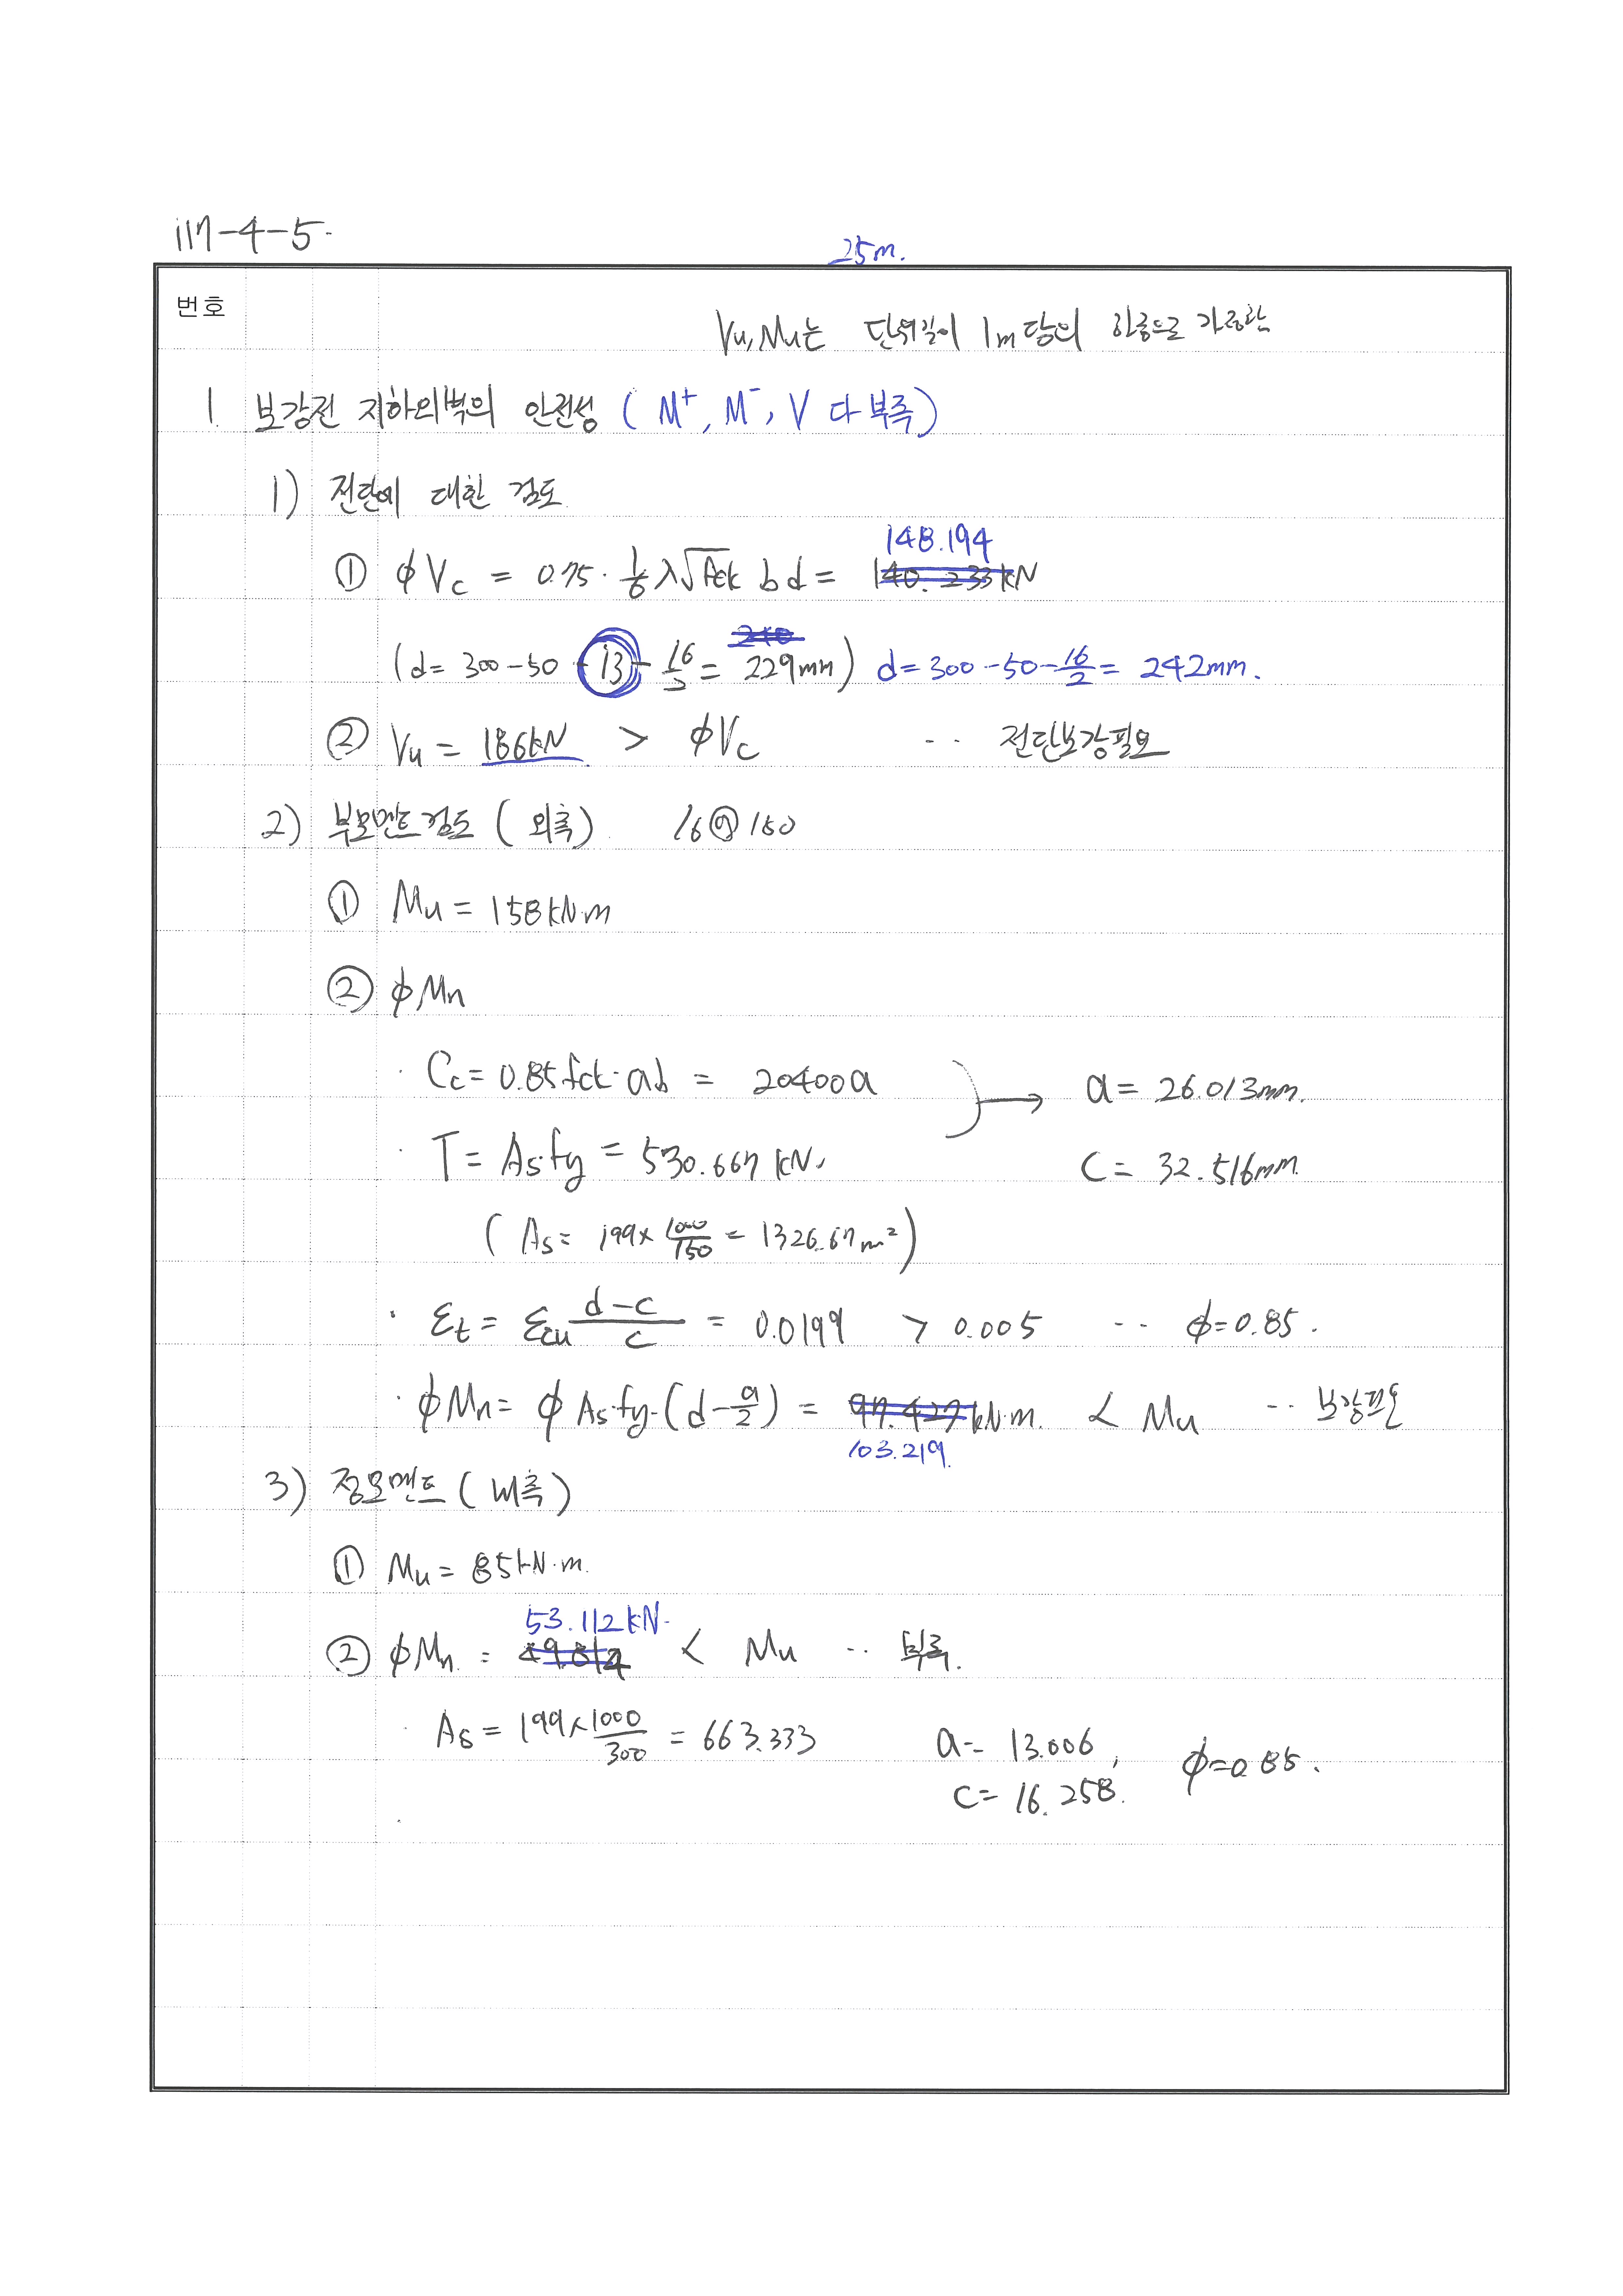 117-4-5.
25m.
번호
Vu, Mu는 단위길이 1m당의 하중으로 가정함
1. 보강전 지하외벽의 안전성 ( M⁺, M⁻, V 다 부족)
1) 전단에 대한 검토
148.194
① φVc = 0.75 · 1/6 λ√fck bd = 140.233kN
240
(d = 300-50-13-16/2 = 229mm) d = 300-50-16/2 = 242mm.
② Vu = 186kN > φVc ‥ 전단보강필요
2) 부모멘트 검토 ( 외측) 16@150
① Mu = 158kN·m
② φMn
· Cc = 0.85fck·ab = 20400a → a = 26.013mm.
· T = As·fy = 530.667 kN. c = 32.516mm
( As = 199×1000/150 = 1326.67m²)
· εt = εcu (d-c)/c = 0.0199 > 0.005 ‥ φ=0.85.
· φMn = φAs·fy·(d-a/2) = 97.427kN·m. < Mu ‥ 보강필요
103.219
3) 정모멘트 ( 내측)
① Mu = 85kN·m.
53.112kN·
② φMn = 49.819 < Mu ‥ 부족.
· As = 199×1000/300 = 663.333 a = 13.006, φ=0.85.
c = 16.258.